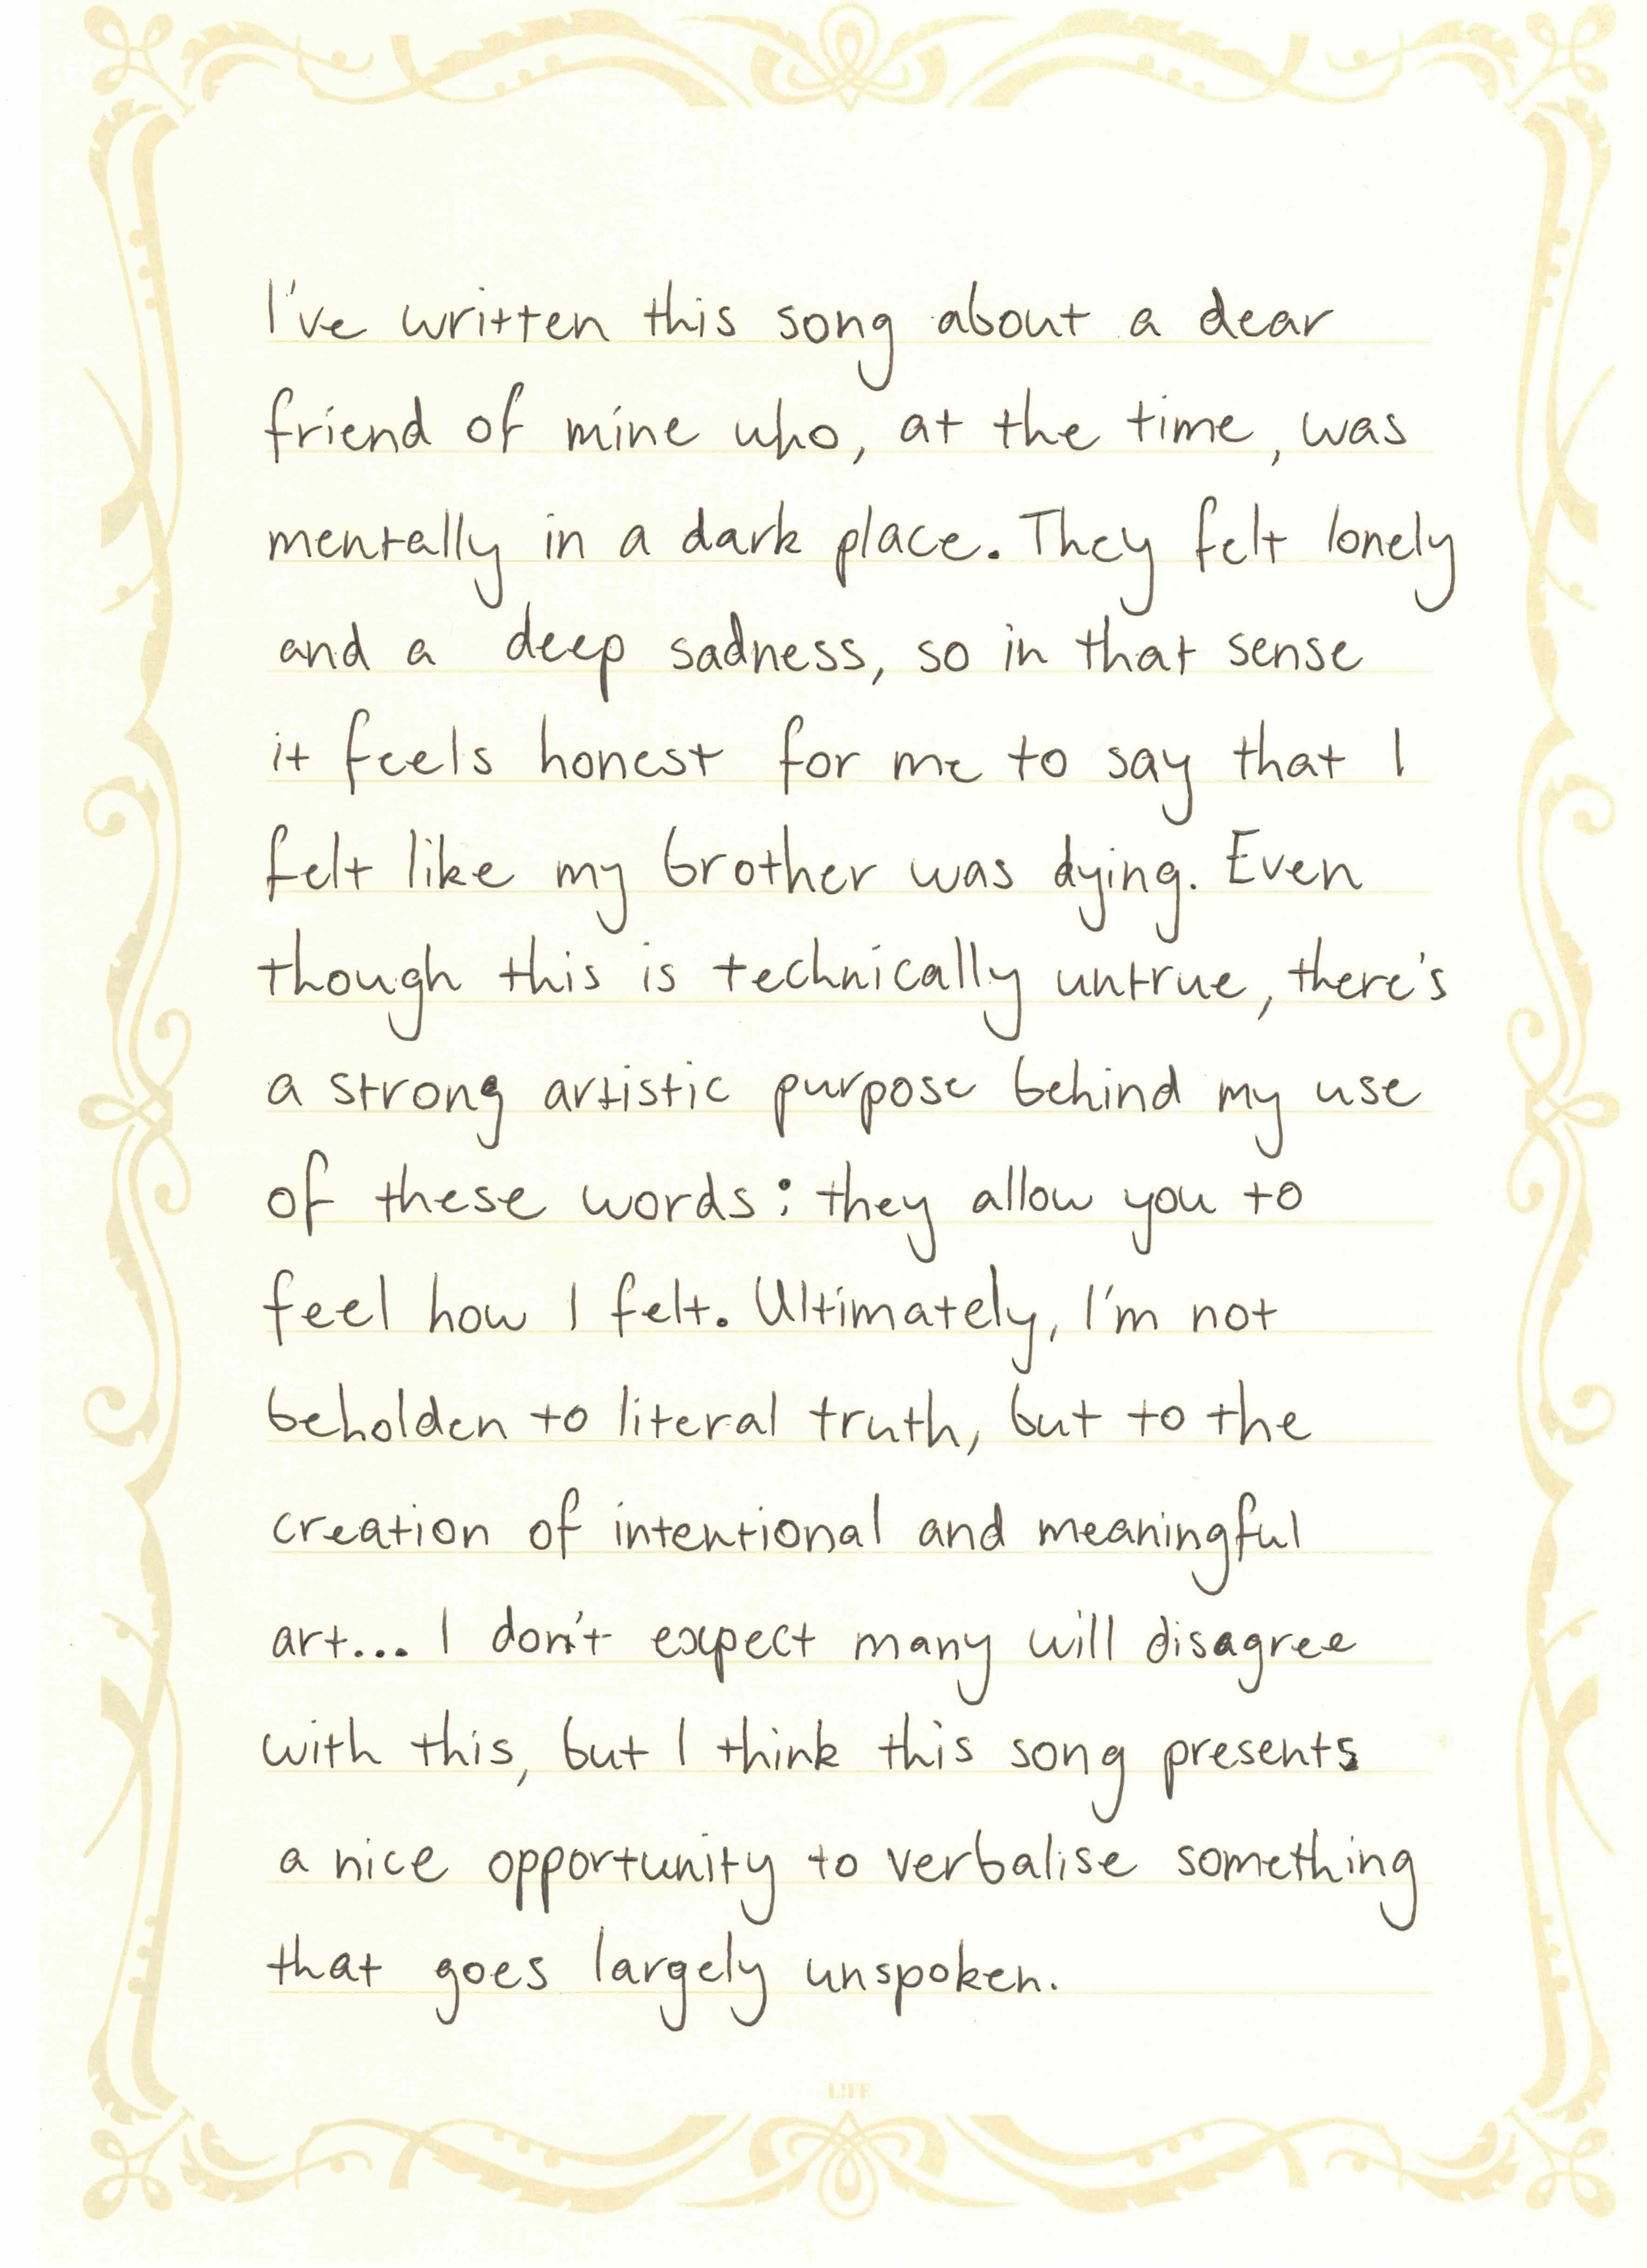 I've written this song about a dear
friend of mine who, at the time, was
mentally in a dark place. They felt lonely
and a deep sadness, so in that sense
it feels honest for me to say that I
felt like my brother was dying. Even
though this is technically untrue, there's
a strong artistic purpose behind my use
of these words: they allow you to
feel how I felt. Ultimately, I'm not
beholden to literal truth, but to the
creation of intentional and meaningful
art... I don't expect many will disagree
with this, but I think this song presents
a nice opportunity to verbalise something
that goes largely unspoken.
L!FE